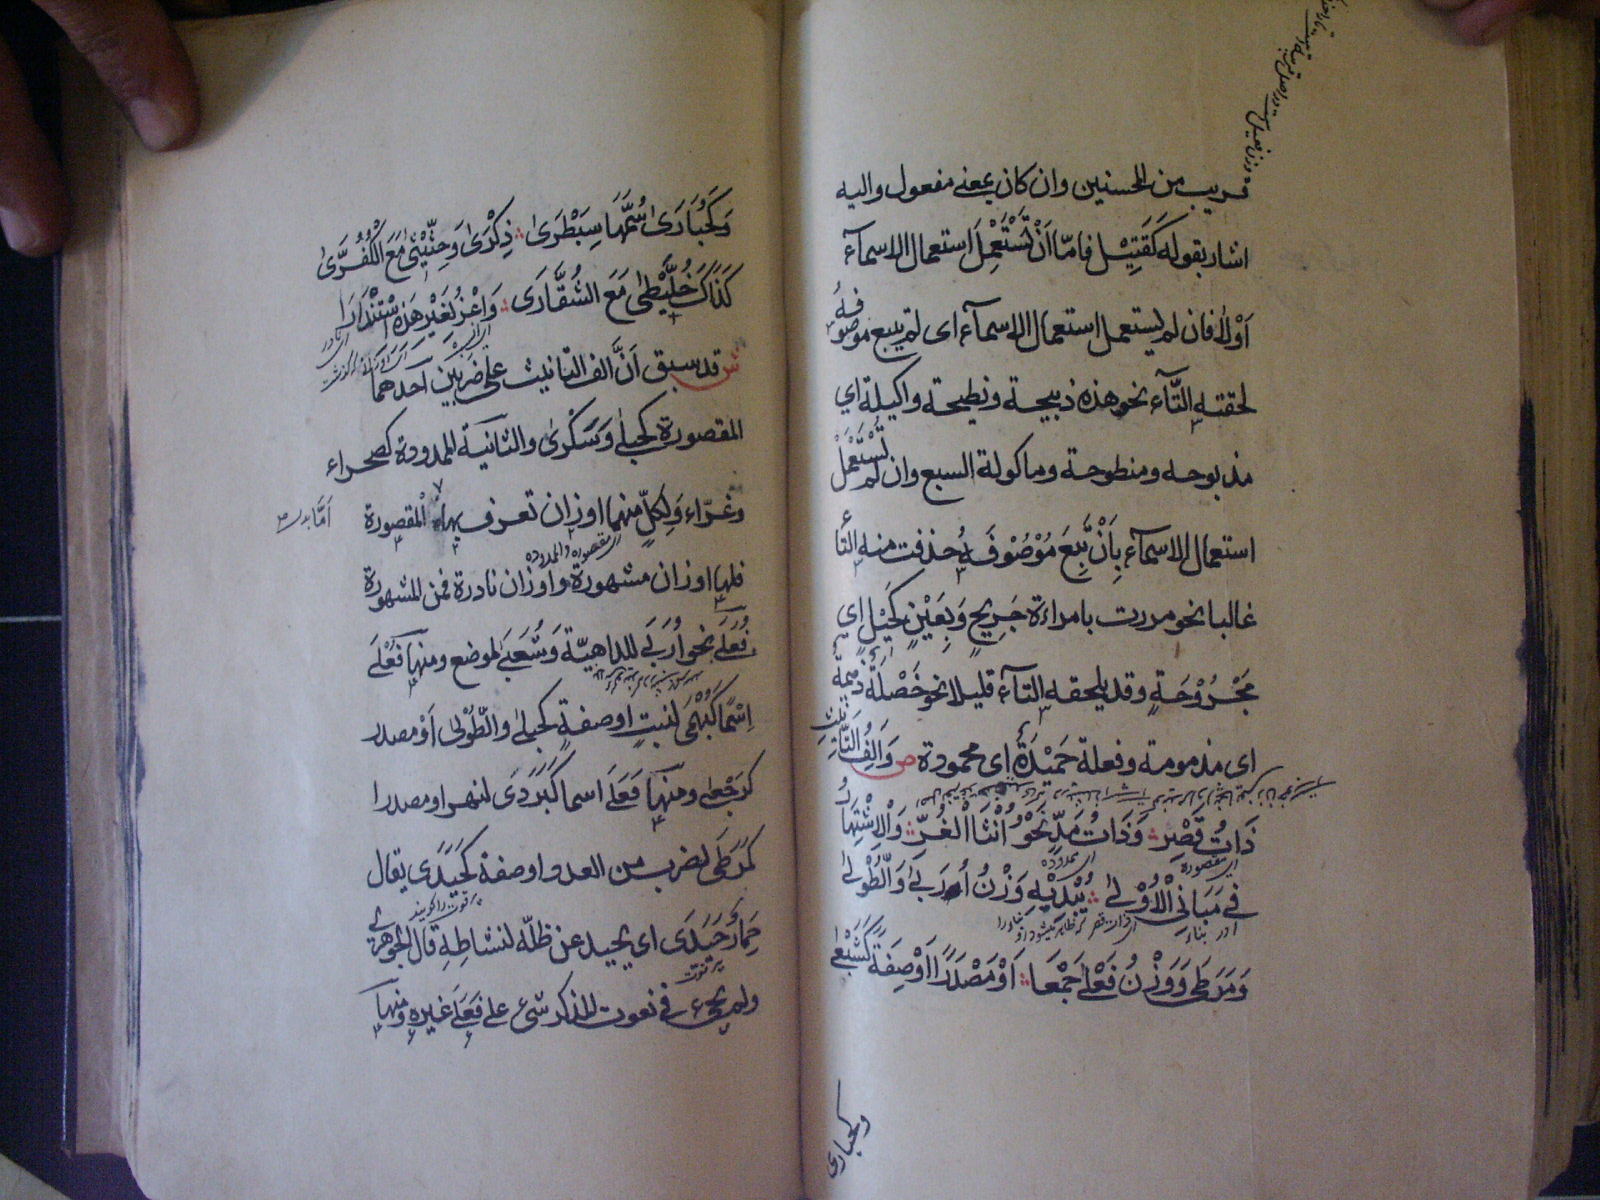 قريب من المحسنين وان كان بمعنى مفعول واليه
اشار بقوله كَقَتِيْل فامّا اَنْ تُسْتَعْمِلَ استعمال الاسمآء
اَوْلا فان لم يستعمل استعمال الاسمآء اى لم يتبع موصوفهُ
لحقته التّآء نحو هذه ذبيحة ونطيحة واكيلة اي
مذبوحه ومنطوحة وماكولة السبع وان لم تُسْتَعْمَلْ
استعمال الاسمآء بِاَنْ تَّبِعَ مَوْصُوْفَهُ حذفت منه التّآء
غالبا نحو مررت بامراءة جَرِيحٍ وَبِعَيْنٍ كَحِيْلٍ اي
مَجْرُوْحَةٍ وقد يلحقه التآء قليلا نحو خَصْلَةٌ ذميمةٌ
اى مذمومة وفعلة حَمِيْدَةٌ اى محمودة ص وَاَلِفُ التَّانيثِ
ذَاتُ قَصْرٍ وَذَاتُ مَدٍّ نَحْوُ اُنْثَا الْغُرِّ وَالْاِشْتِهَارُ
اى مقصورة اى ممدوده
فى مَبَانِى الْاُوْلٰى يُبْدِيْهِ وَزْنُ اُرَبٰى وَالطُّوْلٰى
وَمَرَطٰى وَوَزْنُ فَعْلٰى جَمْعَا اَوْ مَصْدَرًا اَوْصِفَةً كَشَبْعٰى
وكحبارى
وَكَحُبَارَىٰ سُمَّهَا سِبَطْرَىٰ ذِكْرَىٰ وَحِثِّيْثٰى مَعَ الْكُفُرَّىٰ
كَذَاكَ خُلَّيْطٰى مَعَ الشُّقَّارَى وَاعْزُ لِغَيْرِ هٰذِهِ اسْتِنْدَارَا
ش قد سبق اَنَّ الف التانيث على ضربين احدهما
المقصورة كحبلى وَسَكْرٰى والثانية الممدودة كصحراء
وغرّاء وَلِكلٍّ منهما اوزان تعرف بهاء المقصورة
اَمَّا
مقصوره والممدوده
فلها اوزان مشهورة واوزان نادرة فمن المشهورة
فُعَلَى نحو اُرَبَى للداهيّة وَشُعَبَى لموضع ومنها فُعْلَى
اِسْمًا كَبُهْمَى لنبتٍ اوصفةٍ كحبلى والطّولى اَوْ مصدر
كرَجْعى ومنها فَعَلَى اسما كَبَرَدَى لنهر او مصدرا
كمَرَطَى لضرب من العدو اوصفة كَحَيَدَى يقال
حِمَارٌ حَيَدَى اى يحيد عن ظلّه لنشاطِهِ قال الجوهرىّ
ولم يجئ فى نعوت المذكر شئ على فَعَلَى غيره ومنها